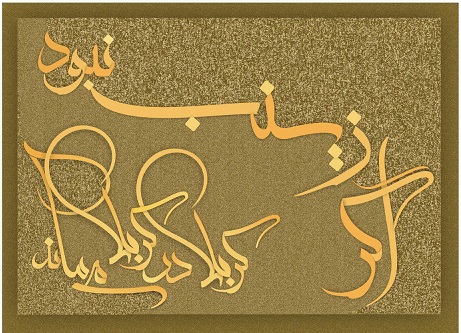 اگر زینب نبود
کربلا در کربلا می ماند